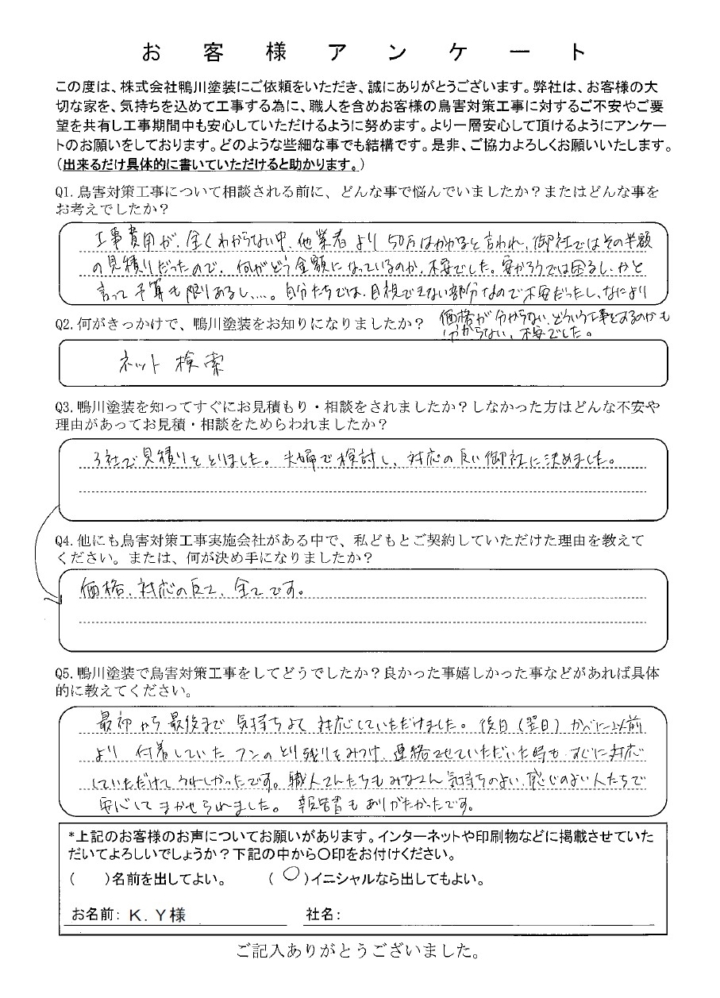 お客様アンケート
この度は、株式会社鴨川塗装にご依頼をいただき、誠にありがとうございます。弊社は、お客様の大
切な家を、気持ちを込めて工事する為に、職人を含めお客様の鳥害対策工事に対するご不安やご要
望を共有し工事期間中も安心していただけるように努めます。より一層安心して頂けるようにアンケー
トのお願いをしております。どのような些細な事でも結構です。是非、ご協力よろしくお願いいたします。
(出来るだけ具体的に書いていただけると助かります。)
Q1.鳥害対策工事について相談される前に、どんな事で悩んでいましたか？またはどんな事を
お考えでしたか？
工事費用が、全くわからない中、他業者より50万はかかると言われ、御社ではその半額
の見積りだったので、何がどう金額になっているのか、不安でした。安かろうでは困るし、かと
言って予算も限りあるし…。自分たちでは、目視できない部分なので不安だったし、なにより
価格が分からない、どういう工事をするのかも
分からない、不安でした。
Q2.何がきっかけで、鴨川塗装をお知りになりましたか？
ネット検索
Q3.鴨川塗装を知ってすぐにお見積もり・相談をされましたか？しなかった方はどんな不安や
理由があってお見積・相談をためらわれましたか？
3社で見積りをとりました。夫婦で検討し、対応の良い御社に決めました。
Q4.他にも鳥害対策工事実施会社がある中で、私どもとご契約していただけた理由を教えて
ください。または、何が決め手になりましたか？
価格、対応の良さ、全てです。
Q5.鴨川塗装で鳥害対策工事をしてどうでしたか？良かった事嬉しかった事などがあれば具体
的に教えてください。
最初から最後まで気持ちよく対応していただけました。後日(翌日)かべに以前
より付着していたフンのとり残りをみつけ、連絡させていただいた時も、すぐに対応
していただけてうれしかったです。職人さんたちもみなさん気持ちのよい、感じのよい人たちで
安心してまかせられました。報告書もありがたかったです。
*上記のお客様のお声についてお願いがあります。インターネットや印刷物などに掲載させていた
だいてよろしいでしょうか？下記の中から〇印をお付けください。
(　　)名前を出してよい。　(〇)イニシャルなら出してもよい。
お名前：K．Y様　社名：
ご記入ありがとうございました。